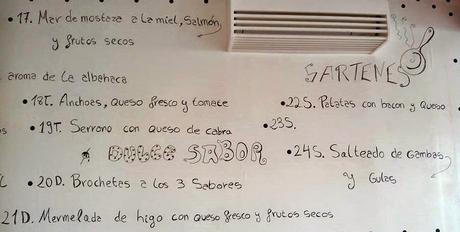 •17. Mar de mostaza a la miel, Salmón,
y frutos secos
SARTENES
aroma de la albahaca
•18T. Anchoas, queso fresco y tomate
•22S. Patatas con bacon y Queso
•19T. Serrano con queso de cabra
•23S.
DULCE SABOR
•24S. Salteado de Gambas
y Gulas
•20D. Brochetas a los 3 Sabores
21D. Mermelada de higo con queso fresco y frutos secos